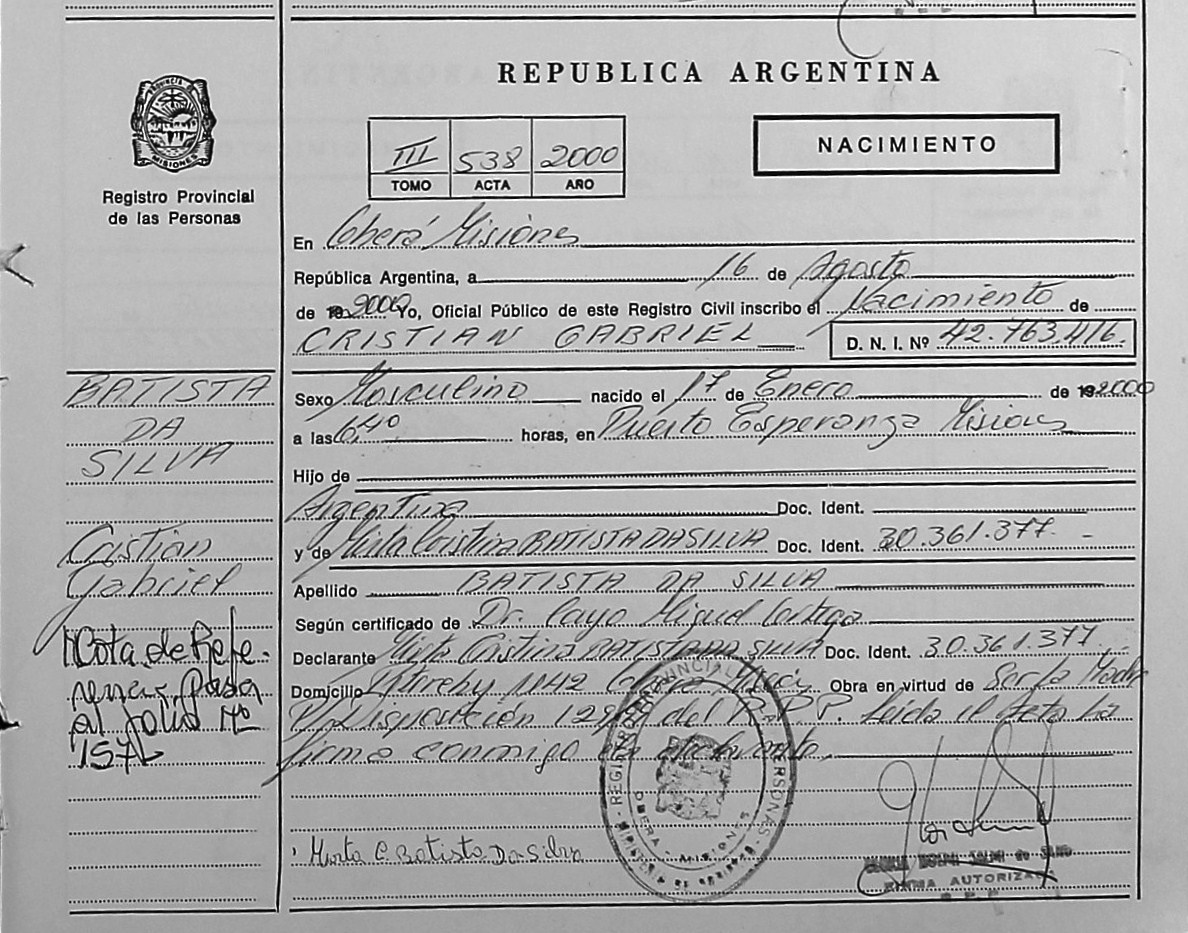 REPUBLICA ARGENTINA
PROVINCIA DE MISIONES
Registro Provincial
de las Personas
III 538 2000
TOMO ACTA AÑO
NACIMIENTO
En Oberá Misiones
República Argentina, a 16 de Agosto
de 19 2000 Yo, Oficial Público de este Registro Civil inscribo el Nacimiento de
CRISTIAN GABRIEL D. N. I. Nº 42.763.416.
BATISTA
DA
SILVA
Cristian
Gabriel
Nota de Refe-
Pasa
al folio Nº
157
Sexo Masculino nacido el 17 de Enero de 19 2000
a las 6,40 horas, en Puerto Esperanza Misiones
Hijo de
Argentina Doc. Ident.
y de Mirta Cristina BATISTA DA SILVA Doc. Ident. 30.361.377.-
Apellido BATISTA DA SILVA
Según certificado de Dr. Cayo Miguel
Declarante Mirta Cristina BATISTA DA SILVA Doc. Ident. 30.361.377.
Domicilio Nº42 Oberá Obra en virtud de
Disposición del R.P.P. Leida el Acta la
firma conmigo el declarante.
REGISTRO PROVINCIAL PERSONAS
OBERA - MISIONES
Mirta C. Batista Da Silva
FIRMA AUTORIZADA
R.P.P.